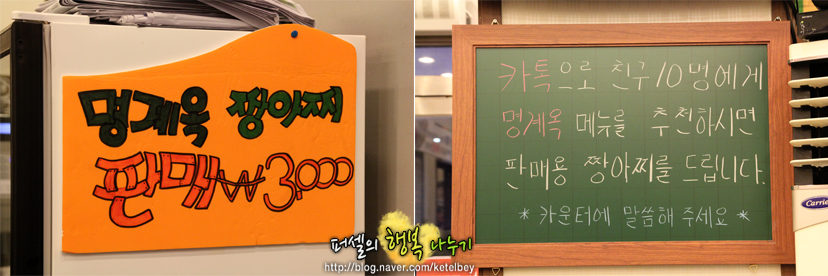 명계옥 짱아찌
판매 ₩3,000
카톡으로 친구 10명에게
명계옥 메뉴를 추천하시면
판매용 짱아찌를 드립니다.
* 카운터에 말씀해 주세요 *
Carrier
퍼셀의 행복 나누기
http://blog.naver.com/ketelbey